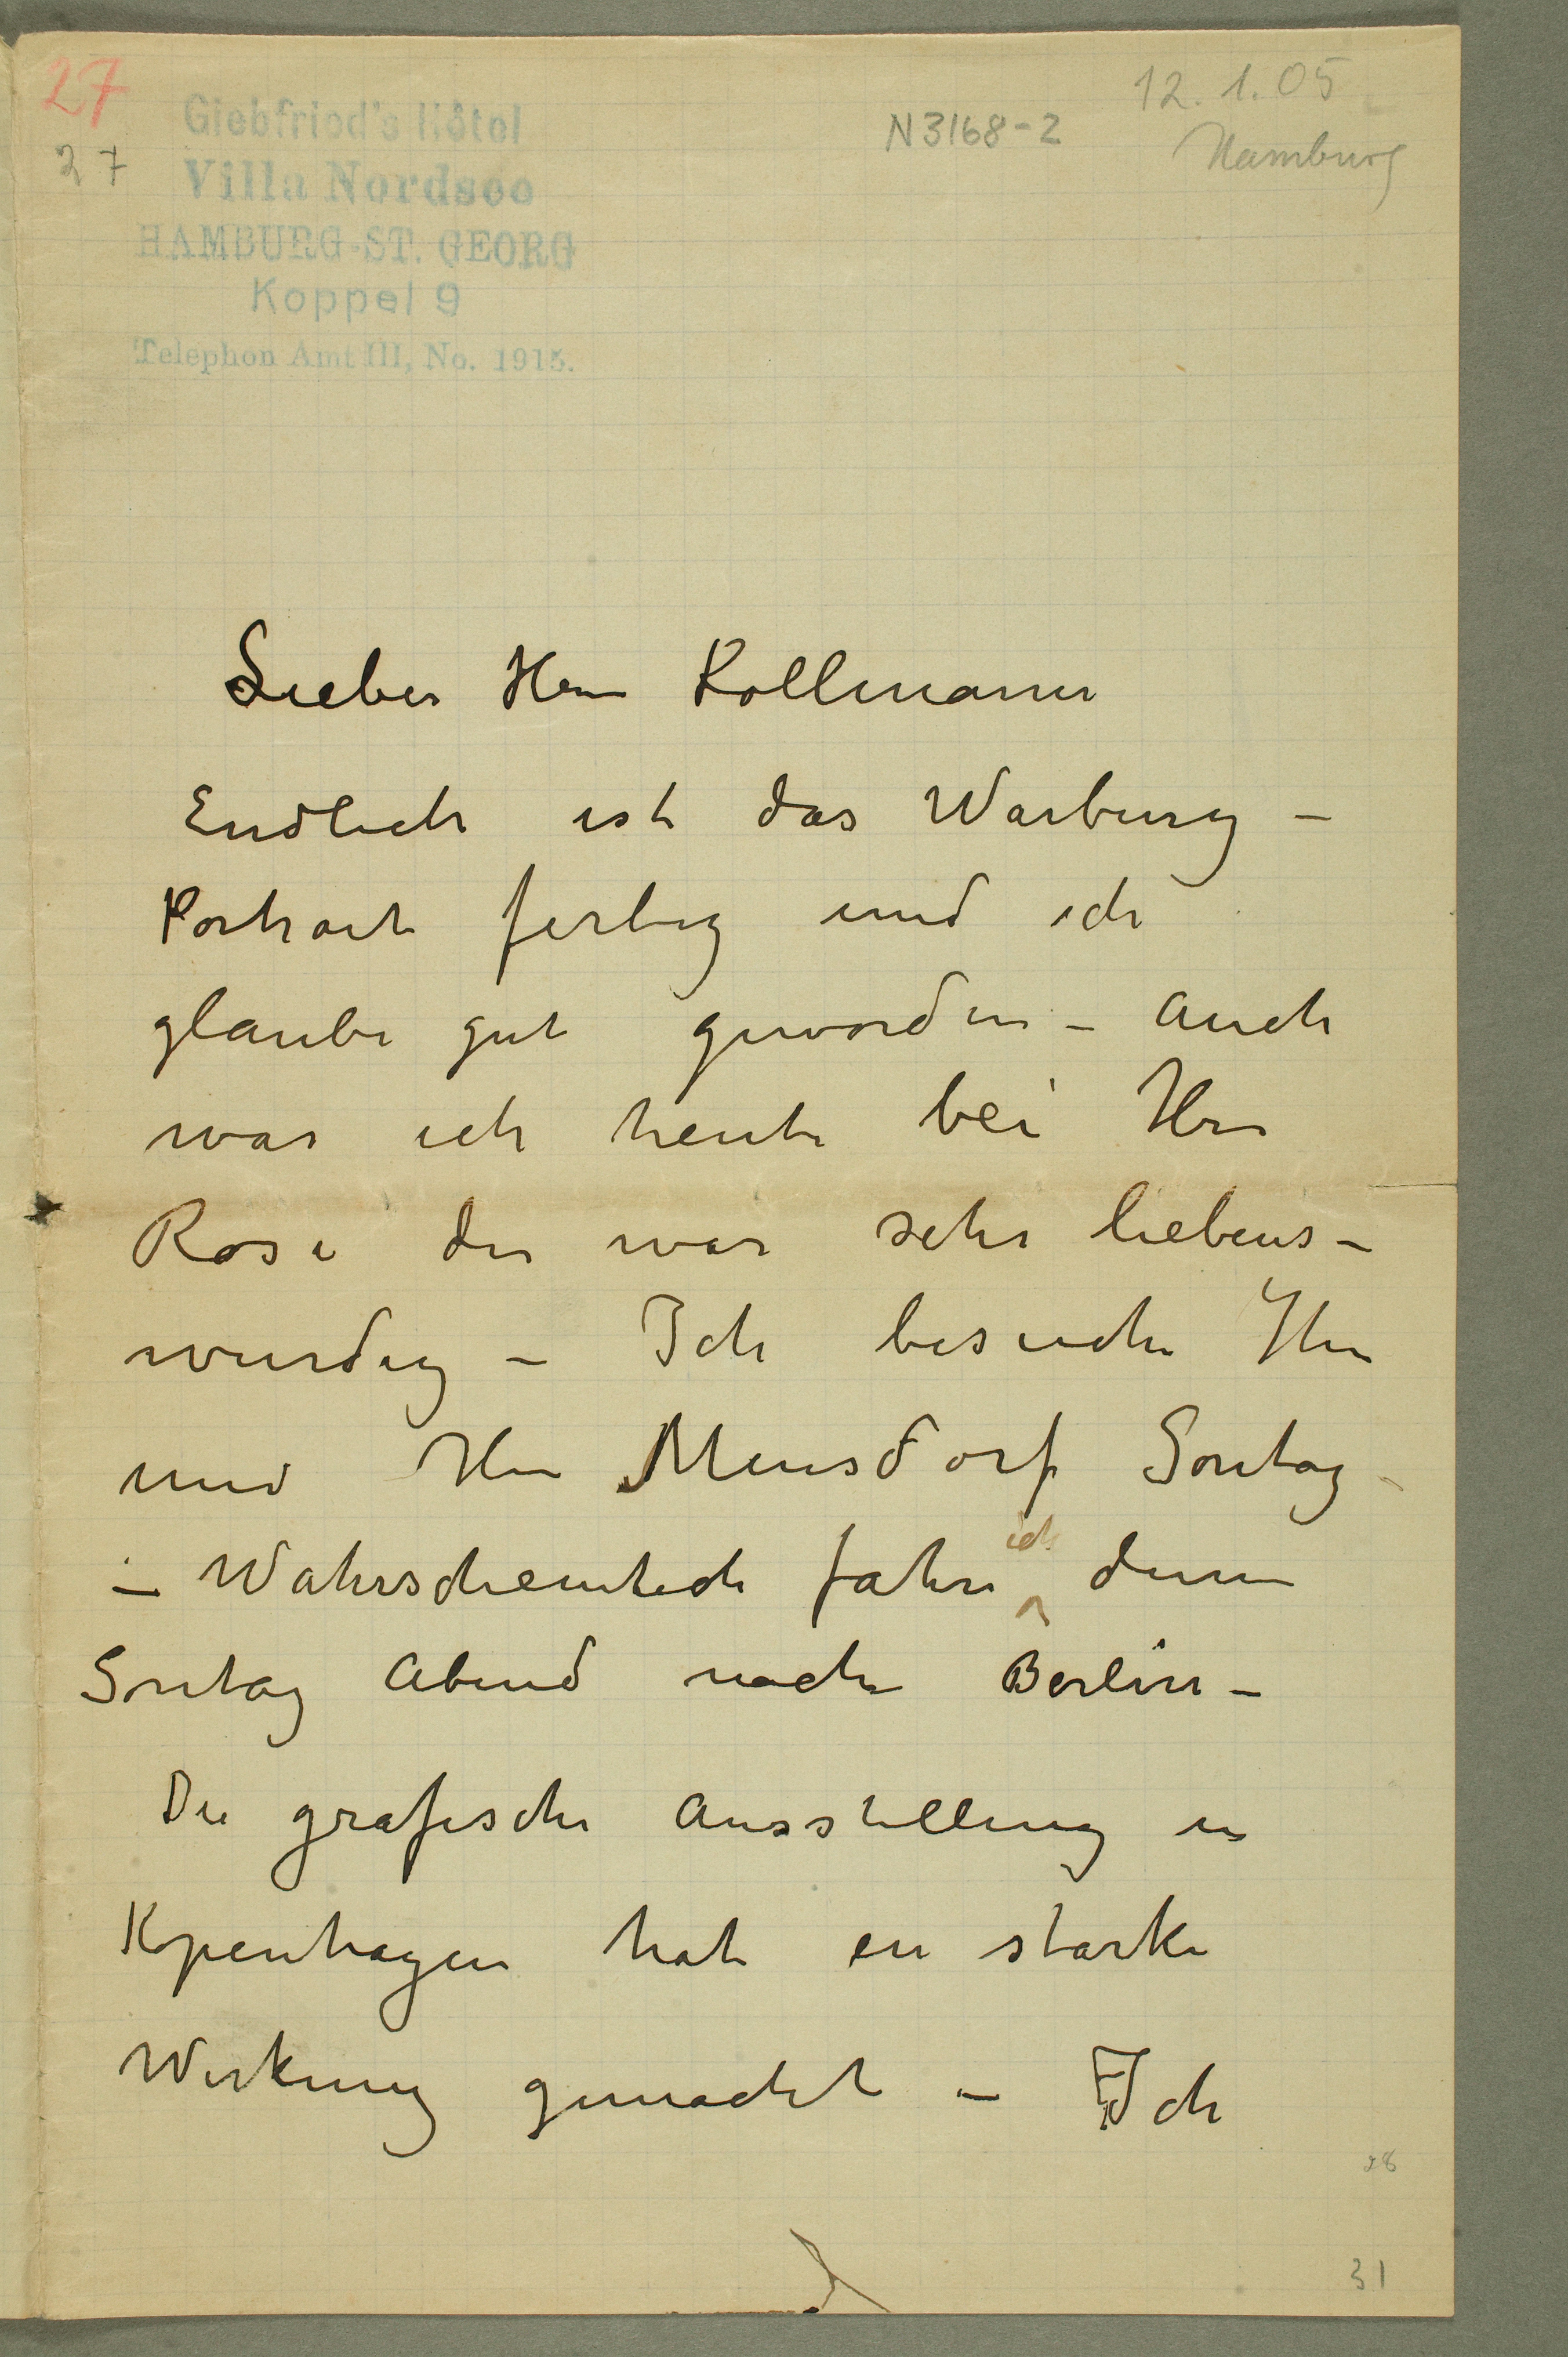 27
27
Giebfried's Hôtel
Villa Nordsee
HAMBURG-ST. GEORG
Koppel 9
Telephon Amt III, No. 1915.
N3168-2
12.1.05
Hamburg
Lieber Herr Kollmann
Endlich ist das Warburg –
Portrait fertig und ich
glaube gut geworden – Auch
war ich heute bei Hrn
Rose der war sehr liebens –
wurdig – Ich besuche Ihn
und Herr Mensdorf Sontag
– Wahrscheinlich fahre ich denn
Sontag Abend nach Berlin –
Die grafische Ausstellung in
Kopenhagen hat ein starke
Wirkung gemacht – Ich
28
31